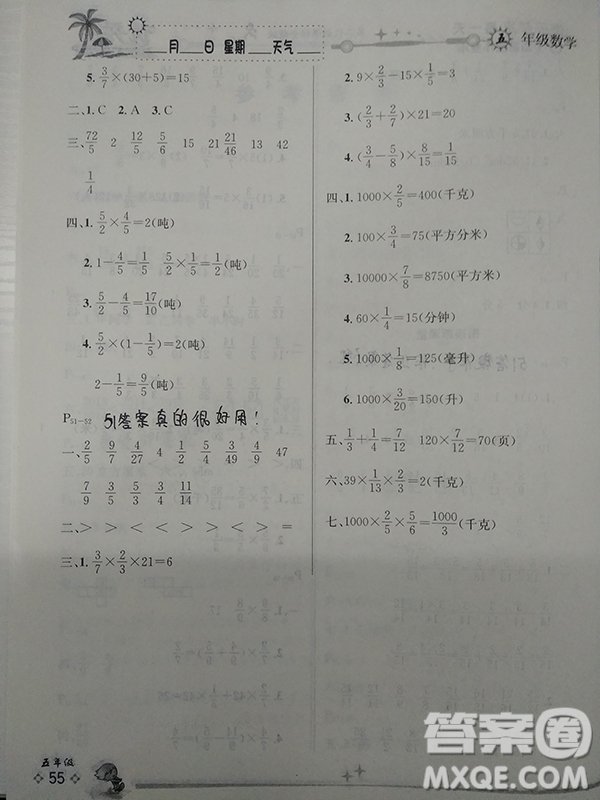 月 日 星期 天气
五 年级数学
5. 3/7×(30+5)=15
二、1. C 2. A 3. C
三、72/5 2 12/5 5/6 15 21 21/46 13 42
1/4
四、1. 5/2×4/5=2(吨)
2. 1-4/5=1/5 5/2×1/5=1/2(吨)
3. 5/2-4/5=17/10(吨)
4. 5/2×(1-1/2)=1/5(吨)
2-1/5=9/5(吨)
P51-52 51答案真的很好用!
一、2/5 9/7 4/27 4 1/2 5/4 3/49 4/9 47
7/9 9/5 5/3 3/4 11/14
二、> > < < > > > > =
三、1. 3/7×2/3×21=6
2. 9×2/3-15×1/5=3
3. (2/3+2/7)×21=20
4. (3/4-5/8)×8/15=1/15
四、1. 1000×2/5=400(千克)
2. 100×3/4=75(平方分米)
3. 10000×7/8=8750(平方米)
4. 60×1/4=15(分钟)
5. 1000×1/8=125(毫升)
6. 1000×3/20=150(升)
五、1/3+1/4=7/12 120×7/12=70(页)
六、39×1/13×2/3=2(千克)
七、1000×2/5×5/6=1000/3(千克)
五年级
55
答案圈
MXQE.COM